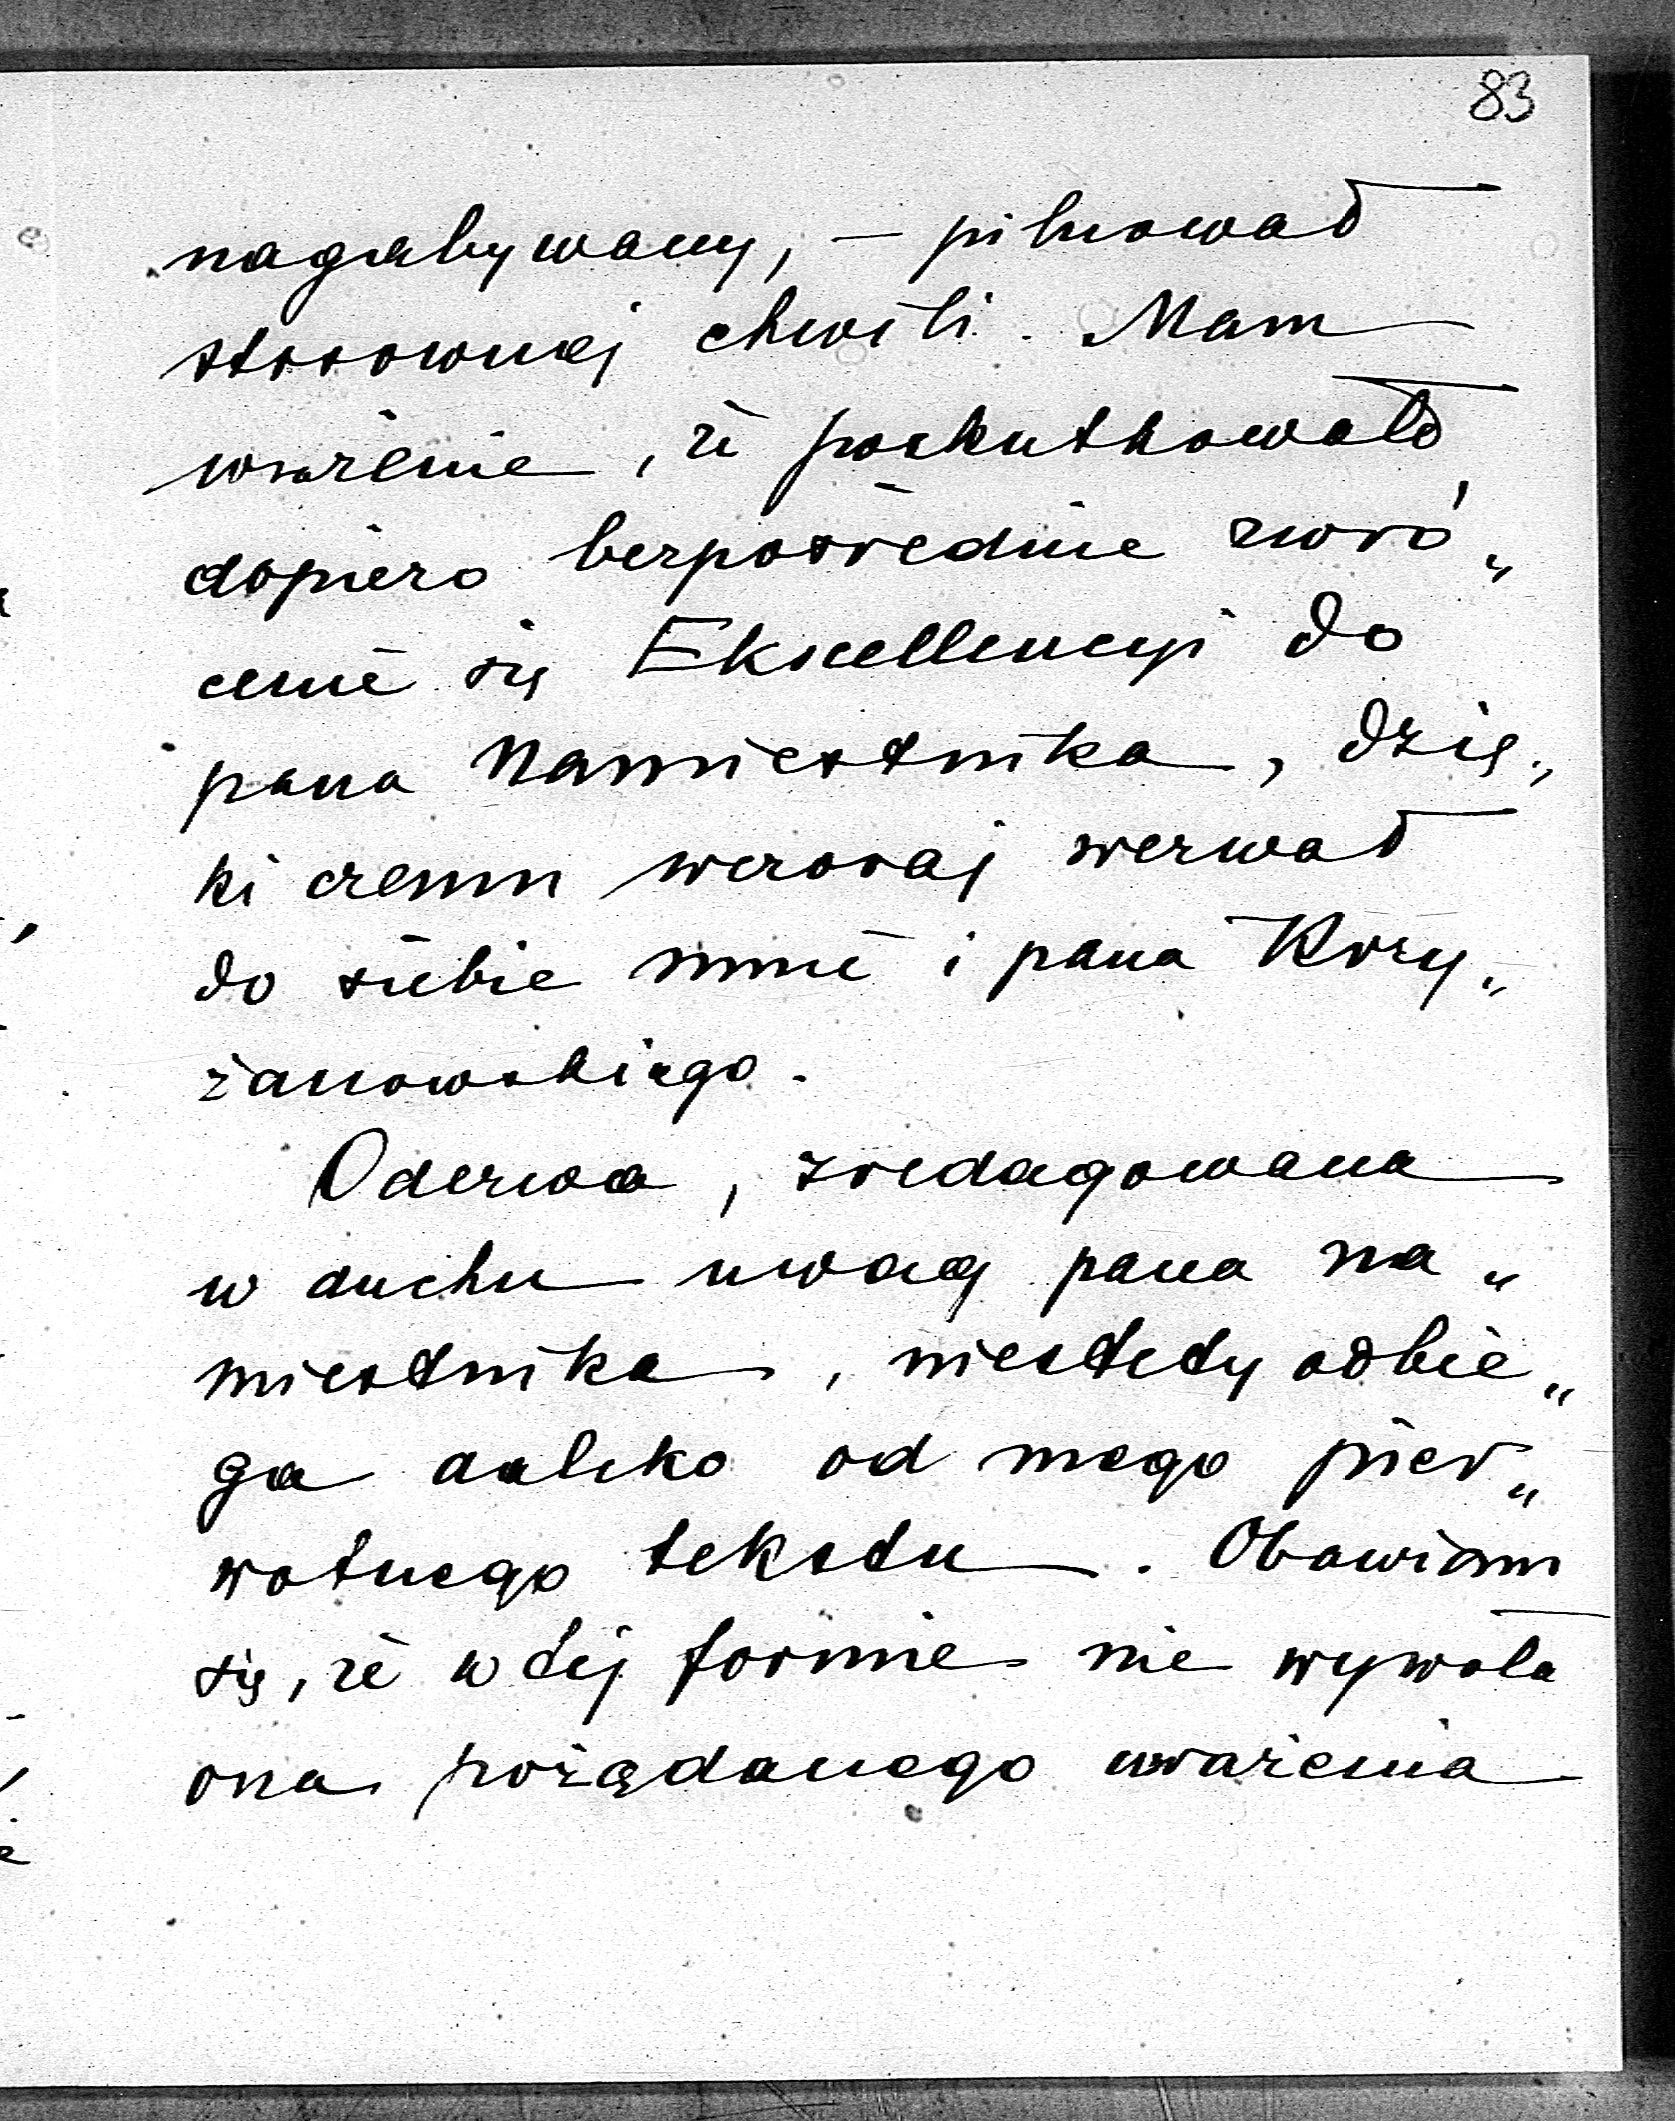 83
nagabywany, — pilnował
stosownej chwili. Mam
wrażenie, że poskutkowało
dopiero bezpośrednie zwró„
cenie się Ekscellencyi do
pana Namiestnika, dzię„
ki czemu wczoraj wezwał
do siebie mnie i pana Krzy„
żanowskiego.
Odezwa, zredagowana
w duchu uwag pana na„
miestnika, niestety odbie„
ga daleko od mego pier„
wotnego tekstu. Obawiam
się, że w tej formie nie wywoła
ona pożądanego wrażenia